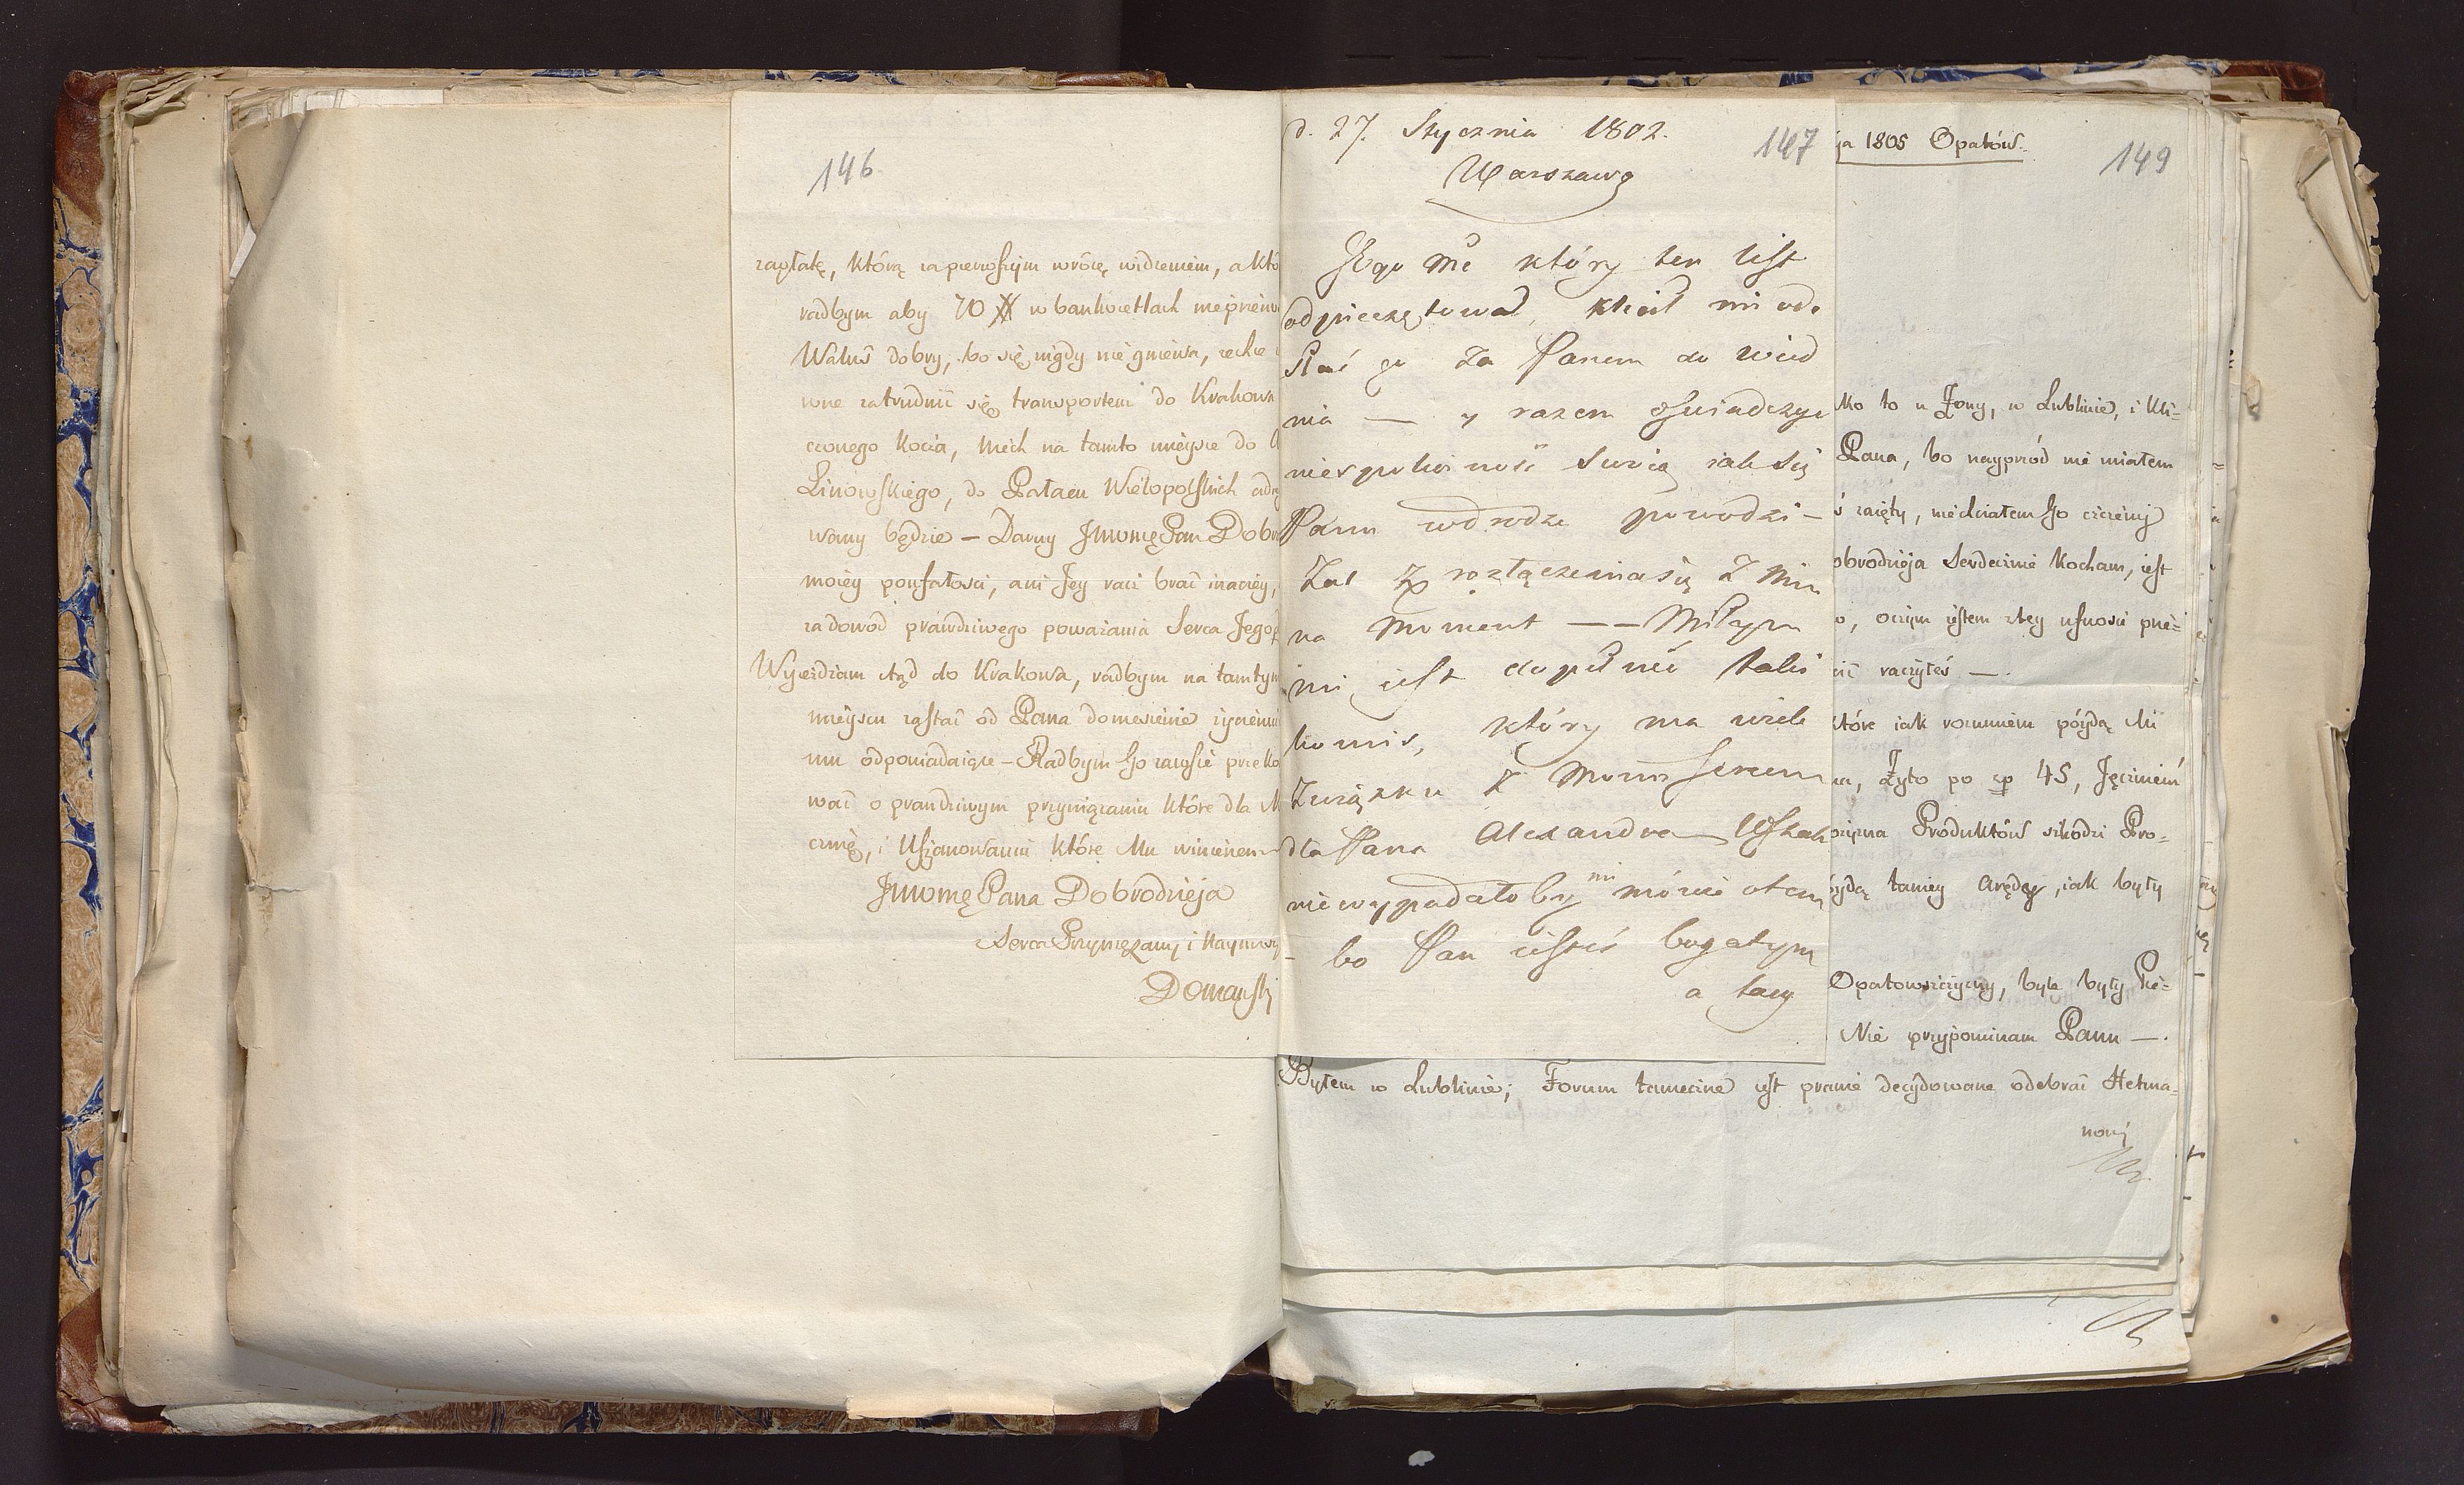 146
zapłatę, którą za pierwszym wrócę widzeniem, a któ
radbym aby 70 # w bankocetlach nieprzeni
Waluś dobry, bo się nigdy nie gniewa, zechce
wne zatrudnić się transportem do Krakowa
czonego Kocia, niech na tamto mieysce do
Linowskiego, do Pałacu Wielopolskich adr
wany będzie – Daruy JmωnęPan Dobr
moiey poufałosci, ani Jey racz brać inaczey,
za dowod prawdziwego poważania Serca Jego
Wyieżdżam ztąd do Krakowa, radbym na tamtym
mieyscu zastać od Pana doniesienie życzeniu
mu odpowiadaiące – Radbym Go zawsze przeko
wać o prawdziwym przywiązaniu które dla
cznię, i Uszanowaniu które Mu winienem
Dobrodzieja
Serca Przywiązany i Nayniższy
Domański
d. 27. Stycznia 1802.
147
Warszawa
który ten list
odpieczętował, kliał mi ode
słać go za Panem do Wied
nia — y razem oświadczyć
niespokoiność swoię iak się
Panu w drodze powodzi –
Żal rozłączenia się z Nim
na moment — — Miłym
mi iest dopełnić taki
komis, który ma wiele
Związku z Moim sercem
dla Pana Alexandra
niewypadałoby mi mówić o tem
– bo Pan iesteś bogatym
a tacy
ja 1805 Opatów.
149
lko to u Jony, w Lublinie, i Kli=
Pana, bo nayprzód nie miałem
ś zaięty, niechciałem Go czczemi
obrodzieja Serdecznie Kocham, iest
o, oczym iestem z tey ufnosci prze=
cić raczyłeś —.
które iak rozumiem póydą dli
na, Żyto po zp 45, Jęczmień
Produktów szkodzi Pro=
óydą taniey Arędy, iak były
Opatowszczyzny, byle były Pie=
Nie przypominam Panu —.
Byłem w Lublinie; Forum tameczne iest prawie decydowane odebrać Hetma=
nowi